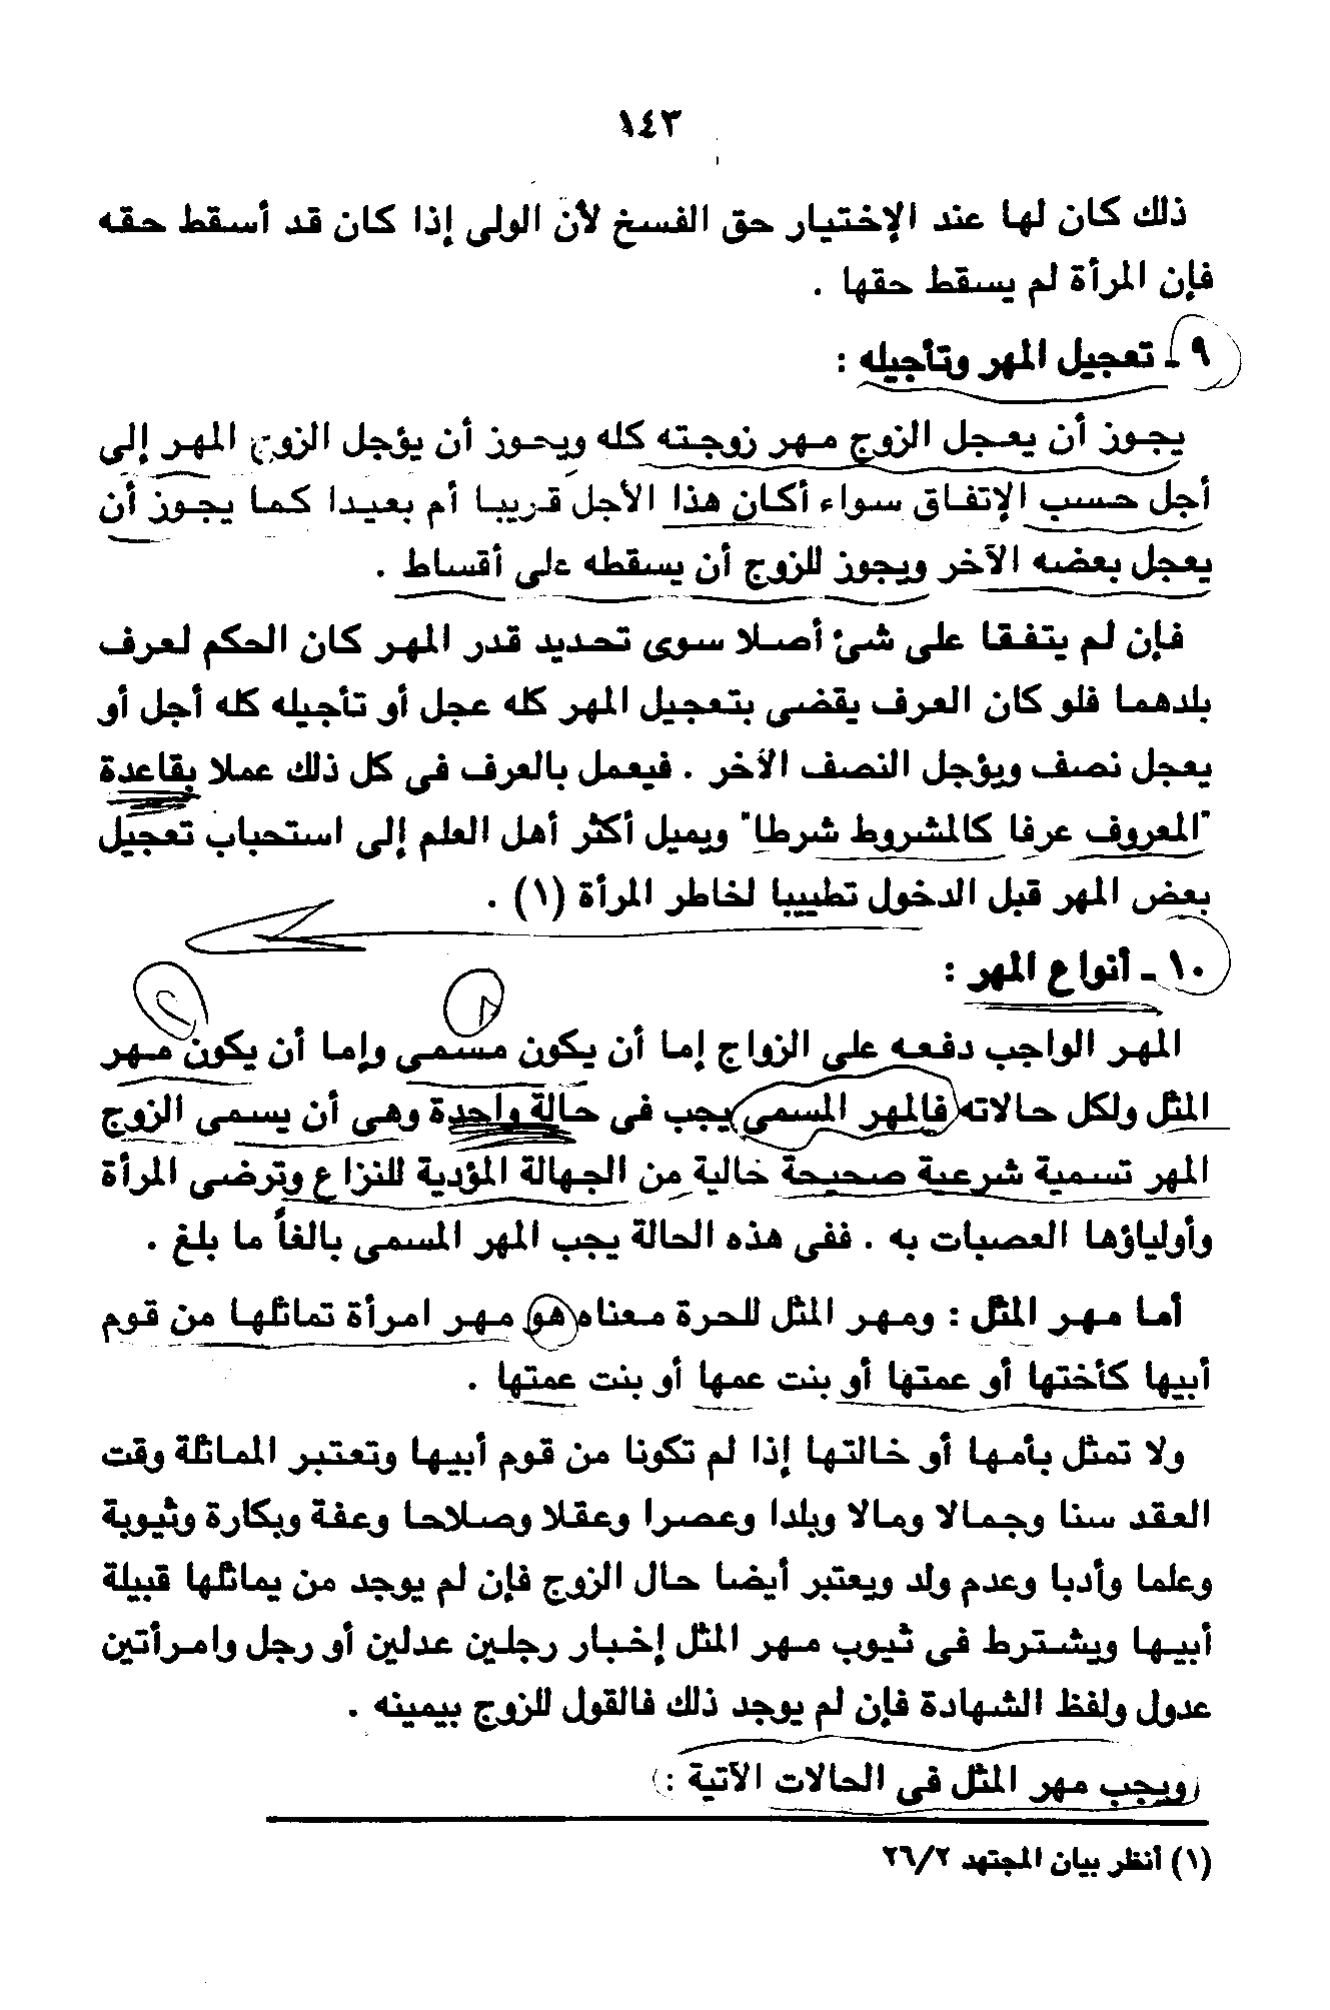 ١٤٣
ذلك كان لها عند الإختيار حق الفسخ لأن الولى إذا كان قد أسقط حقه
فإن المرأة لم يسقط حقها .
٩ ـ تعجيل المهر وتأجيله :
يجوز أن يعجل الزوج مهر زوجته كله ويجوز أن يؤجل الزوج المهر إلى
أجل حسب الإتفاق سواء أكان هذا الأجل قريبا أم بعيدا كما يجوز أن
يعجل بعضه الآخر ويجوز للزوج أن يسقطه على أقساط .
فإن لم يتفقا على شئ أصلا سوى تحديد قدر المهر كان الحكم لعرف
بلدهما فلو كان العرف يقضى بتعجيل المهر كله عجل أو تأجيله كله أجل أو
يعجل نصف ويؤجل النصف الآخر . فيعمل بالعرف فى كل ذلك عملا بقاعدة
"المعروف عرفا كالمشروط شرطا" ويميل أكثر أهل العلم إلى استحباب تعجيل
بعض المهر قبل الدخول تطييبا لخاطر المرأة (١) .
١٠ ـ أنواع المهر :
المهر الواجب دفعه على الزواج إما أن يكون مسمى وإما أن يكون مهر
المثل ولكل حالاته فالمهر المسمى يجب فى حالة واحدة وهى أن يسمى الزوج
المهر تسمية شرعية صحيحة خالية من الجهالة المؤدية للنزاع وترضى المرأة
وأولياؤها العصبات به . ففى هذه الحالة يجب المهر المسمى بالغاً ما بلغ .
أما مهر المثل : ومهر المثل للحرة معناه هو مهر امرأة تماثلها من قوم
أبيها كأختها أو عمتها أو بنت عمها أو بنت عمتها .
ولا تمثل بأمها أو خالتها إذا لم تكونا من قوم أبيها وتعتبر المماثلة وقت
العقد سنا وجمالا ومالا وبلدا وعصرا وعقلا وصلاحا وعفة وبكارة وثيوبة
وعلما وأدبا وعدم ولد ويعتبر أيضا حال الزوج فإن لم يوجد من يماثلها قبيلة
أبيها ويشترط فى ثيوب مهر المثل إخبار رجلين عدلين أو رجل وامرأتين
عدول ولفظ الشهادة فإن لم يوجد ذلك فالقول للزوج بيمينه .
(ويجب مهر المثل فى الحالات الآتية :)
(١) أنظر بيان المجتهد ٢٦/٢